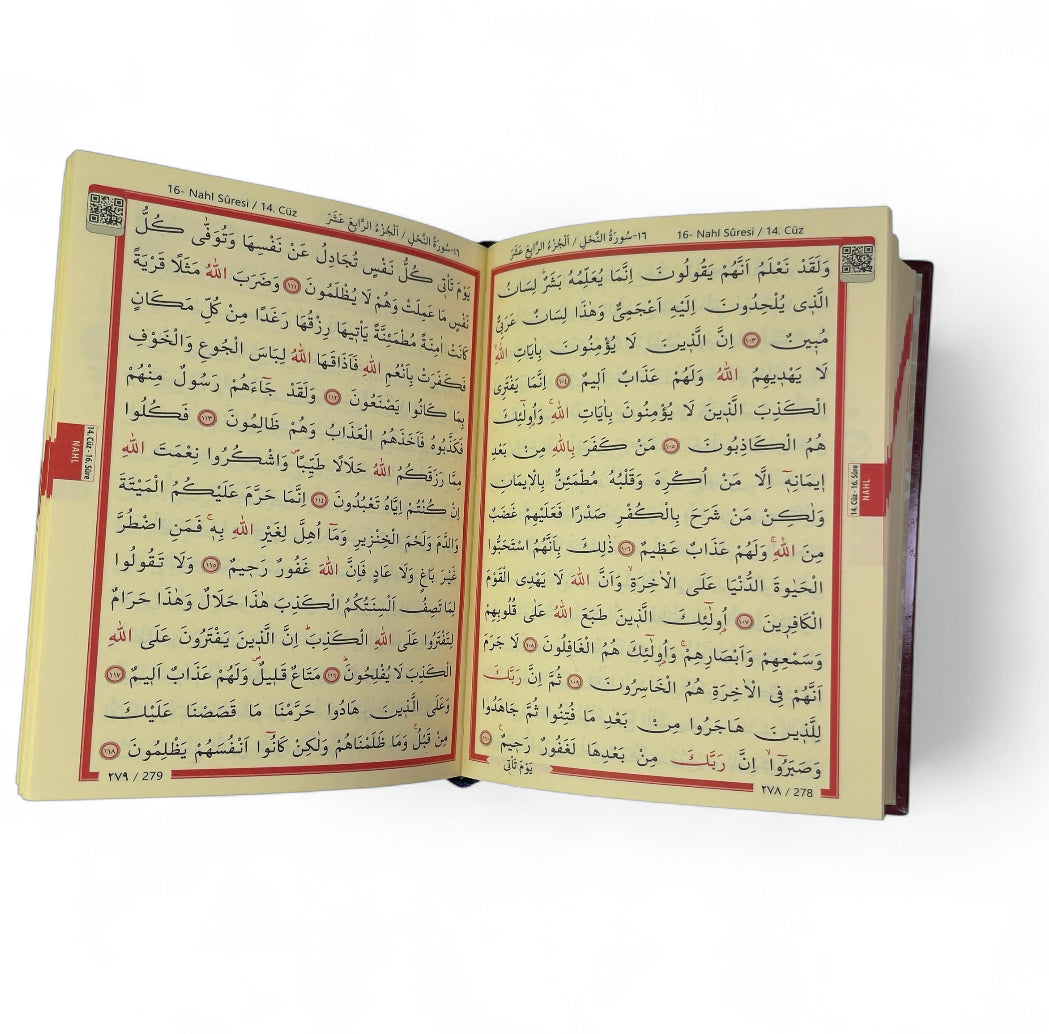 16- Nahl Sûresi / 14. Cüz
١٦-سُورَةُ النَّحْلِ / اَلْجُزْءُ الرَّابِعَ عَشَرَ
وَلَقَدْ نَعْلَمُ اَنَّهُمْ يَقُولُونَ اِنَّمَا يُعَلِّمُهُ بَشَرٌۜ لِسَانُ
الَّذ۪ى يُلْحِدُونَ اِلَيْهِ اَعْجَمِىٌّ وَهٰذَا لِسَانٌ عَرَبِىٌّ
مُب۪ينٌ ﴿١٠٣﴾ اِنَّ الَّذ۪ينَ لَا يُؤْمِنُونَ بِاٰيَاتِ اللّٰهِۙ
لَا يَهْد۪يهِمُ اللّٰهُ وَلَهُمْ عَذَابٌ اَل۪يمٌ ﴿١٠٤﴾ اِنَّمَا يَفْتَرِى
الْكَذِبَ الَّذ۪ينَ لَا يُؤْمِنُونَ بِاٰيَاتِ اللّٰهِۚ وَاُو۬لٰٓئِكَ
هُمُ الْكَاذِبُونَ ﴿١٠٥﴾ مَنْ كَفَرَ بِاللّٰهِ مِنْ بَعْدِ
ا۪يمَانِه۪ٓ اِلَّا مَنْ اُكْرِهَ وَقَلْبُهُ مُطْمَئِنٌّ بِالْا۪يمَانِ
وَلٰكِنْ مَنْ شَرَحَ بِالْكُفْرِ صَدْرًا فَعَلَيْهِمْ غَضَبٌ
مِنَ اللّٰهِۚ وَلَهُمْ عَذَابٌ عَظ۪يمٌ ﴿١٠٦﴾ ذٰلِكَ بِاَنَّهُمُ اسْتَحَبُّوا
الْحَيٰوةَ الدُّنْيَا عَلَى الْاٰخِرَةِۙ وَاَنَّ اللّٰهَ لَا يَهْدِى الْقَوْمَ
الْكَافِر۪ينَ ﴿١٠٧﴾ اُو۬لٰٓئِكَ الَّذ۪ينَ طَبَعَ اللّٰهُ عَلٰى قُلُوبِهِمْ
وَسَمْعِهِمْ وَاَبْصَارِهِمْۚ وَاُو۬لٰٓئِكَ هُمُ الْغَافِلُونَ ﴿١٠٨﴾ لَا جَرَمَ
اَنَّهُمْ فِى الْاٰخِرَةِ هُمُ الْخَاسِرُونَ ﴿١٠٩﴾ ثُمَّ اِنَّ رَبَّكَ
لِلَّذ۪ينَ هَاجَرُوا مِنْ بَعْدِ مَا فُتِنُوا ثُمَّ جَاهَدُوا
وَصَبَرُٓواۙ اِنَّ رَبَّكَ مِنْ بَعْدِهَا لَغَفُورٌ رَح۪يمٌ۟ ﴿١١٠﴾
يَوْمَ تَأْت۪ى
٢٧٨ / 278
14. Cüz - 16. Sûre
NAHL
16- Nahl Sûresi / 14. Cüz
١٦-سُورَةُ النَّحْلِ / اَلْجُزْءُ الرَّابِعَ عَشَرَ
يَوْمَ تَأْت۪ى كُلُّ نَفْسٍ تُجَادِلُ عَنْ نَفْسِهَا وَتُوَفّٰى كُلُّ
نَفْسٍ مَا عَمِلَتْ وَهُمْ لَا يُظْلَمُونَ ﴿١١١﴾ وَضَرَبَ اللّٰهُ مَثَلًا قَرْيَةً
كَانَتْ اٰمِنَةً مُطْمَئِنَّةً يَأْت۪يهَا رِزْقُهَا رَغَدًا مِنْ كُلِّ مَكَانٍ
فَكَفَرَتْ بِاَنْعُمِ اللّٰهِ فَاَذَاقَهَا اللّٰهُ لِبَاسَ الْجُوعِ وَالْخَوْفِ
بِمَا كَانُوا يَصْنَعُونَ ﴿١١٢﴾ وَلَقَدْ جَٓاءَهُمْ رَسُولٌ مِنْهُمْ
فَكَذَّبُوهُ فَاَخَذَهُمُ الْعَذَابُ وَهُمْ ظَالِمُونَ ﴿١١٣﴾ فَكُلُوا
مِمَّا رَزَقَكُمُ اللّٰهُ حَلَالًا طَيِّبًاۖ وَاشْكُرُوا نِعْمَتَ اللّٰهِ
اِنْ كُنْتُمْ اِيَّاهُ تَعْبُدُونَ ﴿١١٤﴾ اِنَّمَا حَرَّمَ عَلَيْكُمُ الْمَيْتَةَ
وَالدَّمَ وَلَحْمَ الْخِنْز۪يرِ وَمَٓا اُهِلَّ لِغَيْرِ اللّٰهِ بِه۪ۚ فَمَنِ اضْطُرَّ
غَيْرَ بَاغٍ وَلَا عَادٍ فَاِنَّ اللّٰهَ غَفُورٌ رَح۪يمٌ ﴿١١٥﴾ وَلَا تَقُولُوا
لِمَا تَصِفُ اَلْسِنَتُكُمُ الْكَذِبَ هٰذَا حَلَالٌ وَهٰذَا حَرَامٌ
لِتَفْتَرُوا عَلَى اللّٰهِ الْكَذِبَۜ اِنَّ الَّذ۪ينَ يَفْتَرُونَ عَلَى اللّٰهِ
الْكَذِبَ لَا يُفْلِحُونَۜ ﴿١١٦﴾ مَتَاعٌ قَل۪يلٌۖ وَلَهُمْ عَذَابٌ اَل۪يمٌ ﴿١١٧﴾
وَعَلَى الَّذ۪ينَ هَادُوا حَرَّمْنَا مَا قَصَصْنَا عَلَيْكَ
مِنْ قَبْلُۚ وَمَا ظَلَمْنَاهُمْ وَلٰكِنْ كَانُٓوا اَنْفُسَهُمْ يَظْلِمُونَ ﴿١١٨﴾
٢٧٩ / 279
14. Cüz - 16. Sûre
NAHL